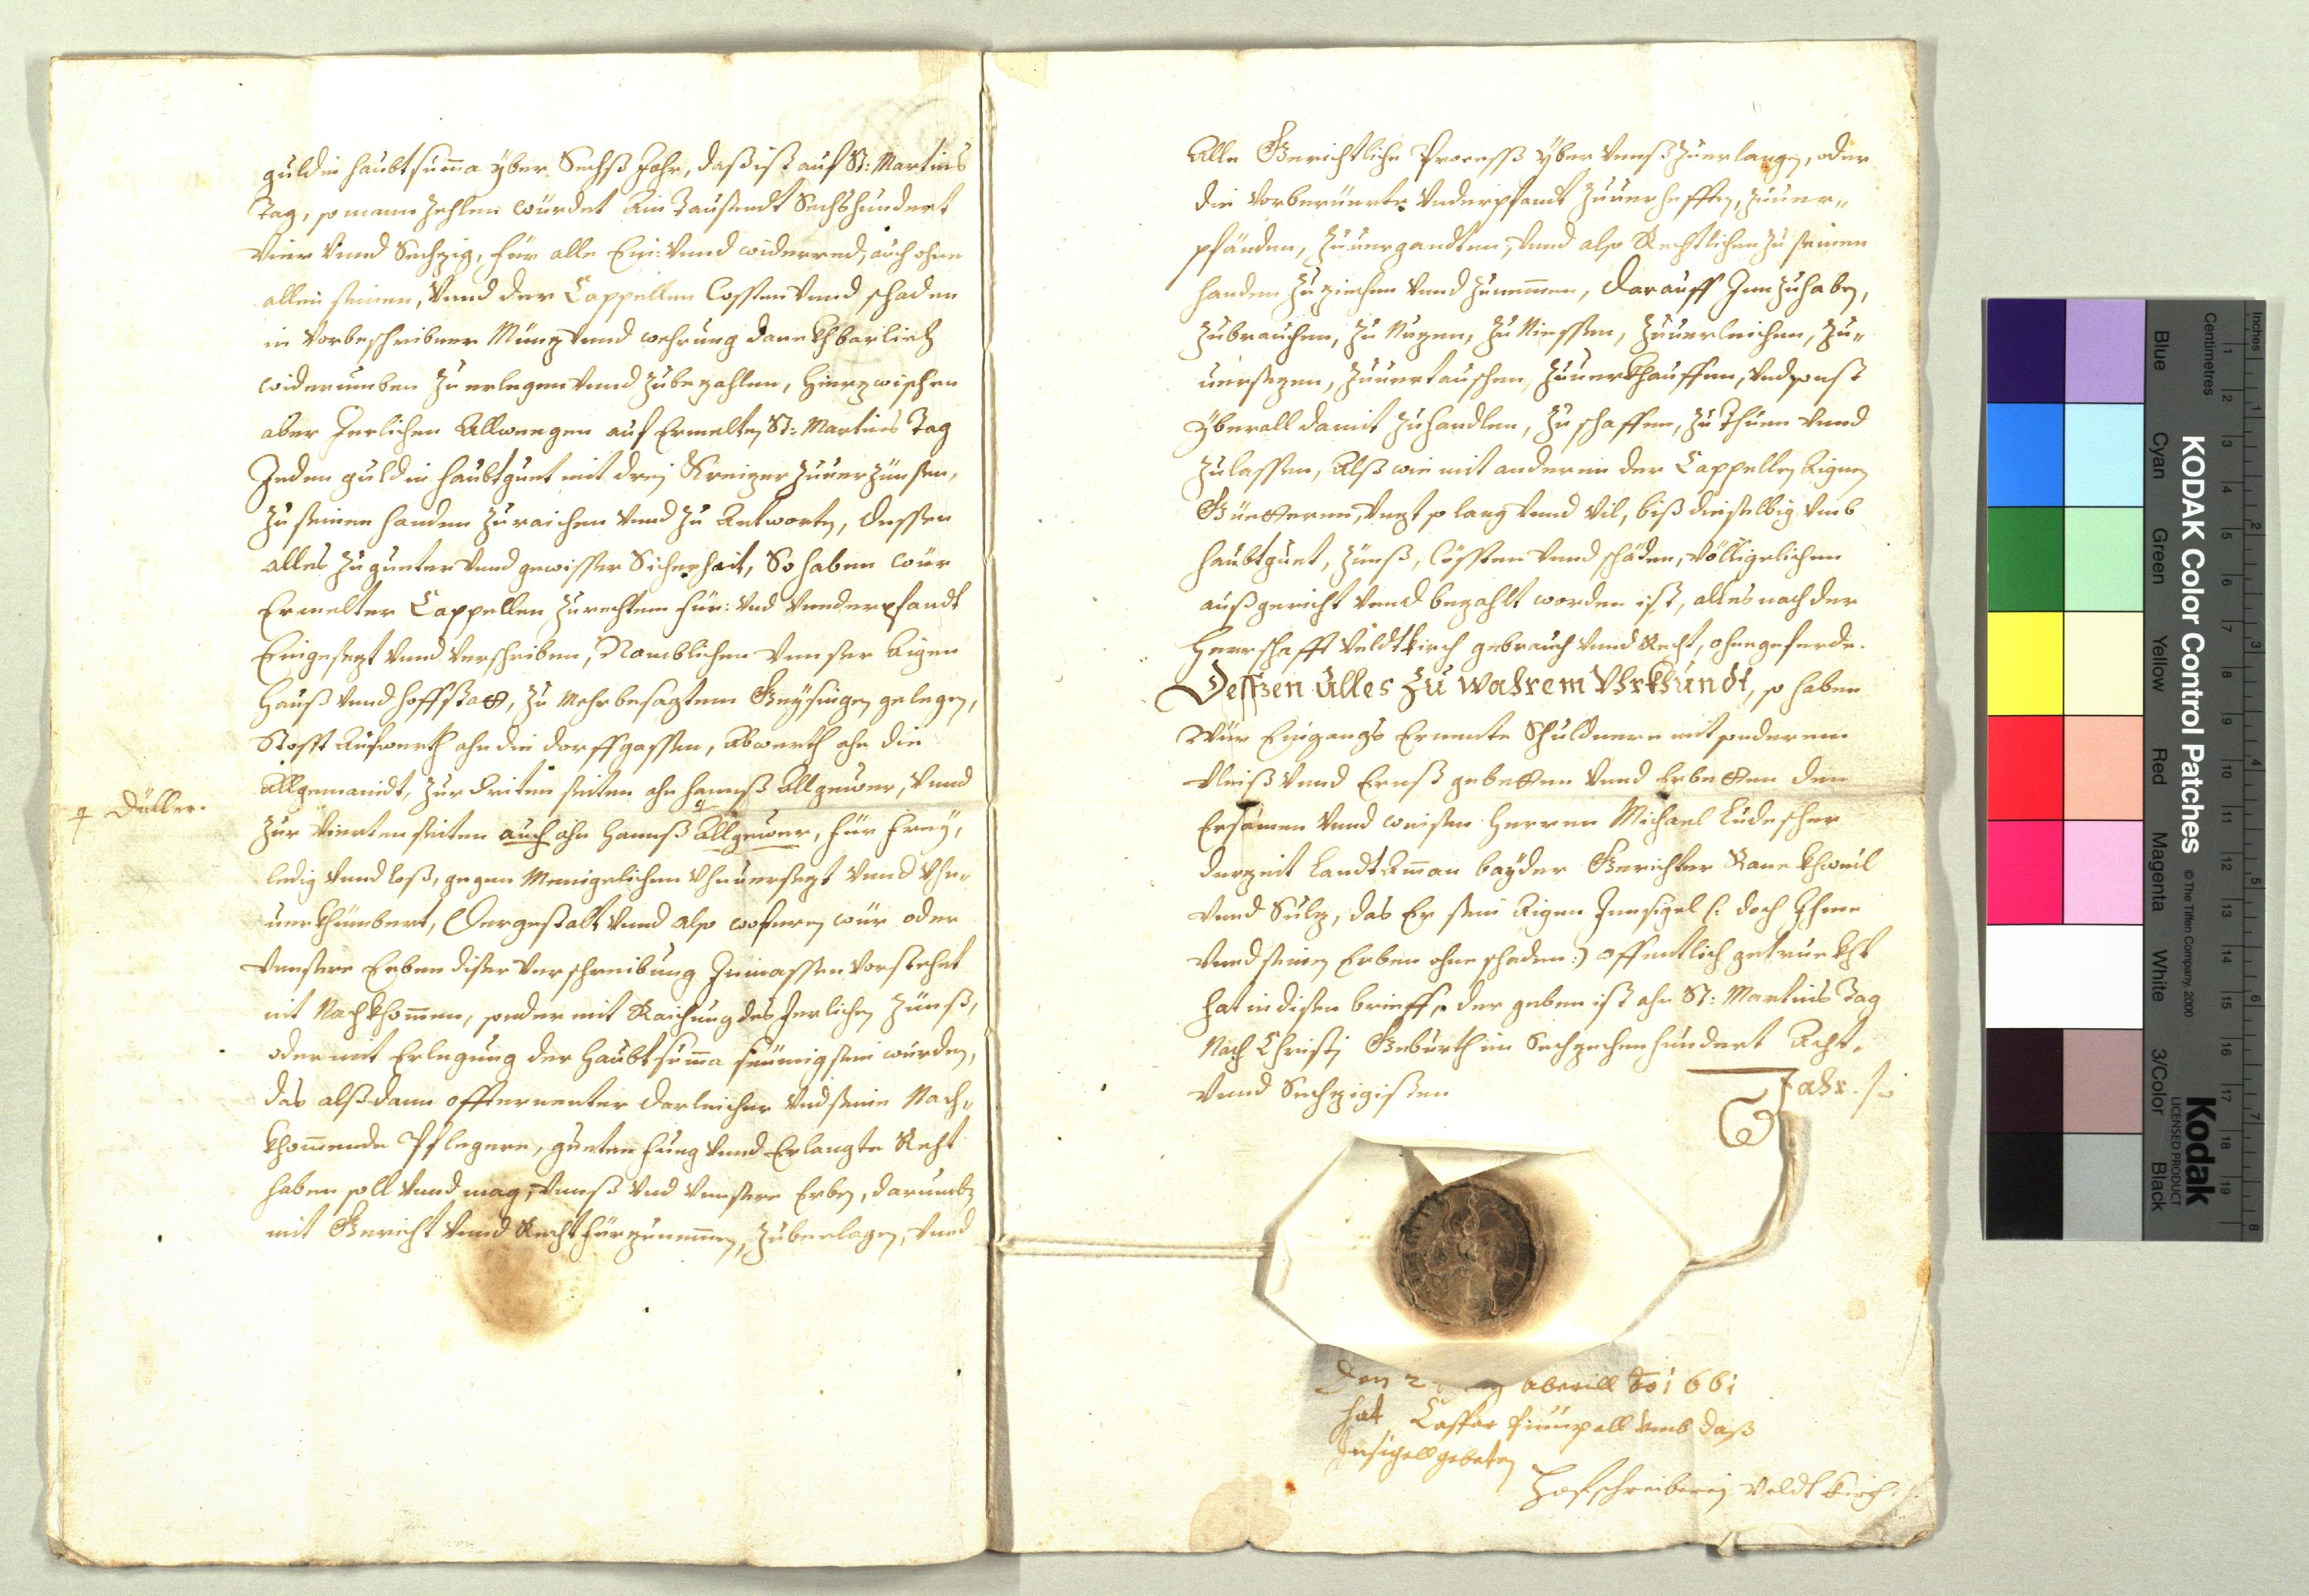 guldin haubtsuma yber Sechß Jahr, daß ist auf St: Martins
Tag, so mann zehlen würdet Ain Taussendt Sechshundert
Vier Vnnd Sechzig, für alle Ein: Vnnd widerred, auch ohne
allen seinen, Vnnd der Cappellen Cossten Vnnd schaden
in Vorbeschribner Münz Vnnd wehrung danckhbarlich
widerumben zu erlegen Vnnd zubezahlen, hierzwischen
aber Jerlichen Allweegen auf Ermelten St: Martins Tag
Jeden guldin haubtguet mit drej Kreizer zuuerzünsen,
zu seinen handen zu raichen Vnnd zu Antworten, dessen
alles zu gueter Vnnd gewisser Sicherhait, So haben wür
Ermelter Cappellen zu rechtem für: Vnd Vnderpfandt
Eingesezt Vnnd Verschriben, Namblichen Vnnser Aigen
Hauß Vnnd hoffstatt, zu Mehrbesagtem gelegen,
Stosst Aufwerth ahn die dorffgassen, Abwerth ahn die
Allgemaindt, zur driten seiten ahn hannß Allgewer, Vnnd
zur Vierten seiten auch ahn hannß Allgewer, für freÿ,
Düller.
ledig Vnnd loß, gegen Menigelichen Vhnuersezt Vnnd Vhn„
uerkhümbert, Dergestalt Vnnd also woferen wür oder
Vnnsere Erben diser Verschreibung Inmassen Vorstehet
nit Nachkhommen, sonder mit Raichung des Jerlichen Zünß,
oder mit Erlegung der haubtsuma seümig sein wurden,
das alßdann offternenter darleicher Vnd seine Nach„
khommende Pflegere, gueten fueg Vnnd Erlangte Recht
haben soll Vnnd mag, Vnnß Vnd Vnnsere Erben, darumb
mit Gericht Vnnd Recht fürzunemmen, zubeclagen, Vnnd
Alle Gerichtliche Process yber Vnnß zuerlangen, oder
die Vorberüerte Vnderpfandt zuuerhefften, zuuer„
pfänden, zuuergandten, Vnnd also Rechtlichen zu seinen
handen zu ziechen Vnnd zunemmen, darauff Innzuhaben,
zubrauchen, zu Nuzen, zu Niessen, zuuerleichen, zu„
uersezen, zuuertauschen, zuuerkhauffen, Vnd sonst
yberall damit zuhandlen, zu schaffen, zu Thuen Vnnd
zulassen, Alß wie mit anderen der Cappellen Aignen
Güetteren, Vnzt so lang Vnnd Vil, biß dieselbig Vmb
haubtguet, Zünß, Cössten Vnnd schäden, Völligelichen
außgericht Vnnd bezahlt worden ist, alles nach der
Herrschafft Veldtkirch gebrauch Vnnd Recht, ohngeferde.
Dessen alles zu wahrem Vhrkhundt, so haben
Wür Eingangs Ernente Schuldnere mit sonderem
Vleiß Vnnd Ernst gebetten Vnnd Erbetten den
Ersamen Vnnd weisen Herren Michael Ludescher
derzeit LandtAman bayder Gerichter Ranckhweil
Vnnd Sulz, das Er sein Aigen Innsigel (: doch Ihme
Vnnd seinen Erben ohne schaden:) offentlich getruckht
hat in disen brieff, der geben ist ahn St: Martins Tag
Nach Christj Geburth im Sechzechenhundert Acht„
Vnnd Sechzigisten Jahr.
Den 2 Aberill Ao 1661
hat Casspar vmb daß
Insigell gebeten
Hofschreiberej Veldtkirch.